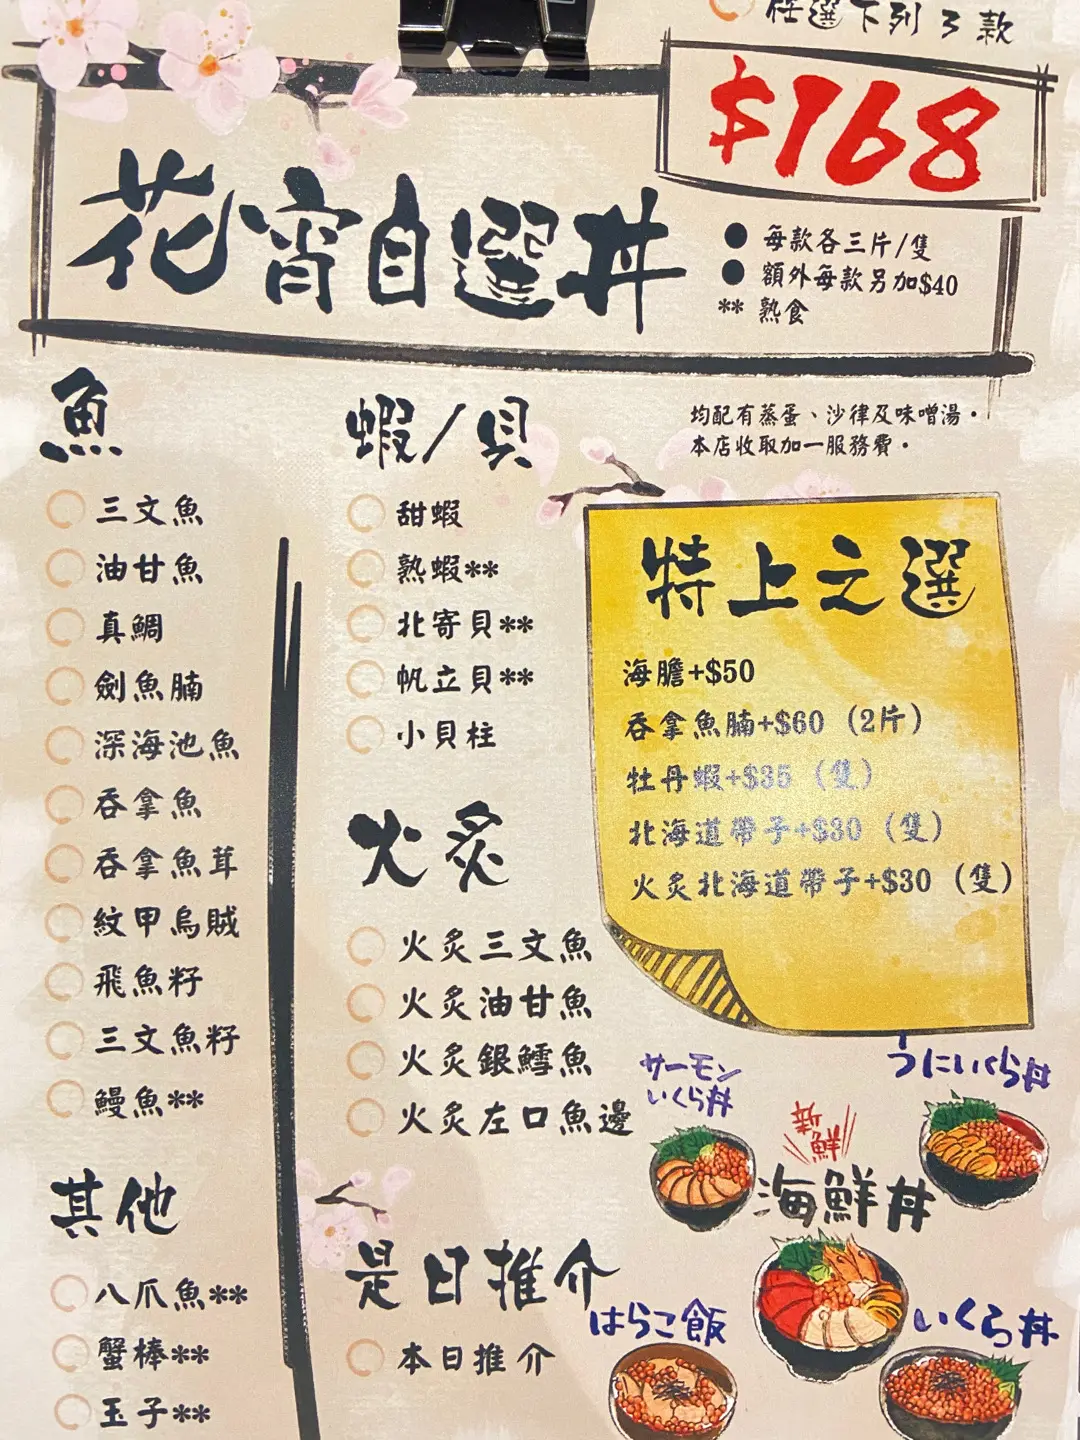 任選下列3款
$168
花宵自選丼
● 每款各三片/隻
● 額外每款另加$40
** 熟食
均配有蒸蛋、沙律及味噌湯。
本店收取加一服務費。
魚
三文魚
油甘魚
真鯛
劍魚腩
深海池魚
吞拿魚
吞拿魚茸
紋甲烏賊
飛魚籽
三文魚籽
鰻魚**
其他
八爪魚**
蟹棒**
玉子**
蝦/貝
甜蝦
熟蝦**
北寄貝**
帆立貝**
小貝柱
火炙
火炙三文魚
火炙油甘魚
火炙銀鱈魚
火炙左口魚邊
是日推介
本日推介
特上之選
海膽+$50
吞拿魚腩+$60（2片）
牡丹蝦+$35（隻）
北海道帶子+$30（隻）
火炙北海道帶子+$30（隻）
サーモン
いくら丼
うにいくら丼
新鮮
海鮮丼
はらこ飯
いくら丼